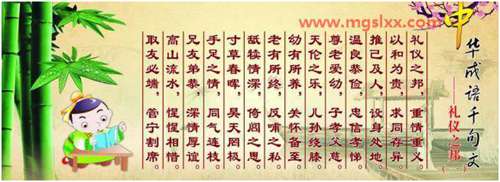 www.mgslxx.com
中华成语千句文
——礼仪之邦
礼仪之邦，重情重义
以和为贵，求同存异
推己及人，设身处地
温良恭俭，忠信孝悌
尊老爱幼，子孝父慈
天伦之乐，儿孙绕膝
幼有所养，关怀备至
老有所终，反哺之私
舐犊情深，倚闾之思
寸草春晖，昊天罔极
手足之情，同气连枝
兄友弟恭，深情厚谊
高山流水，惺惺相惜
取友必端，管宁割席